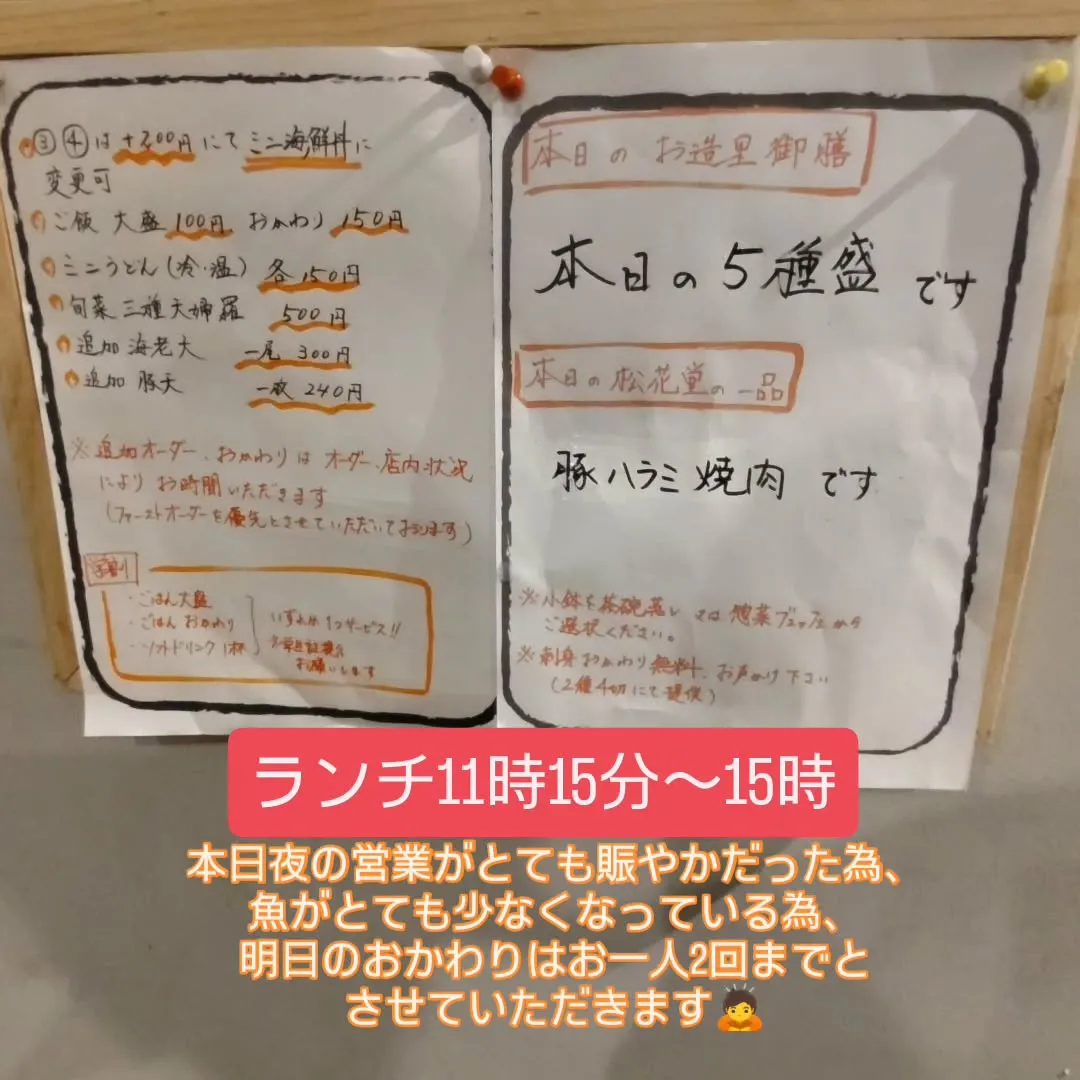 ③④は+200円にてミニ海鮮丼に
変更可
ご飯 大盛100円、おかわり150円
ミニうどん(冷・温) 各150円
旬菜三種天婦羅 500円
追加海老天 一尾300円
追加 豚天 一枚240円
※追加オーダー、おかわりはオーダー、店内状況
によりお時間いただきます
(ファーストオーダーを優先とさせていただいております)
学割
・ごはん大盛
・ごはんおかわり
・ソフトドリンク1杯
いずれか1つサービス!!
お願いします
本日のお造里御膳
本日の5種盛です
本日の松花堂の一品
豚ハラミ焼肉です
※小鉢を茶碗蒸し又は惣菜ブッフェから
ご選択ください。
※刺身おかわり無料、お声かけ下さい
(2種4切にて提供)
ランチ11時15分〜15時
本日夜の営業がとても賑やかだった為、
魚がとても少なくなっている為、
明日のおかわりはお一人2回までと
させていただきます🙇